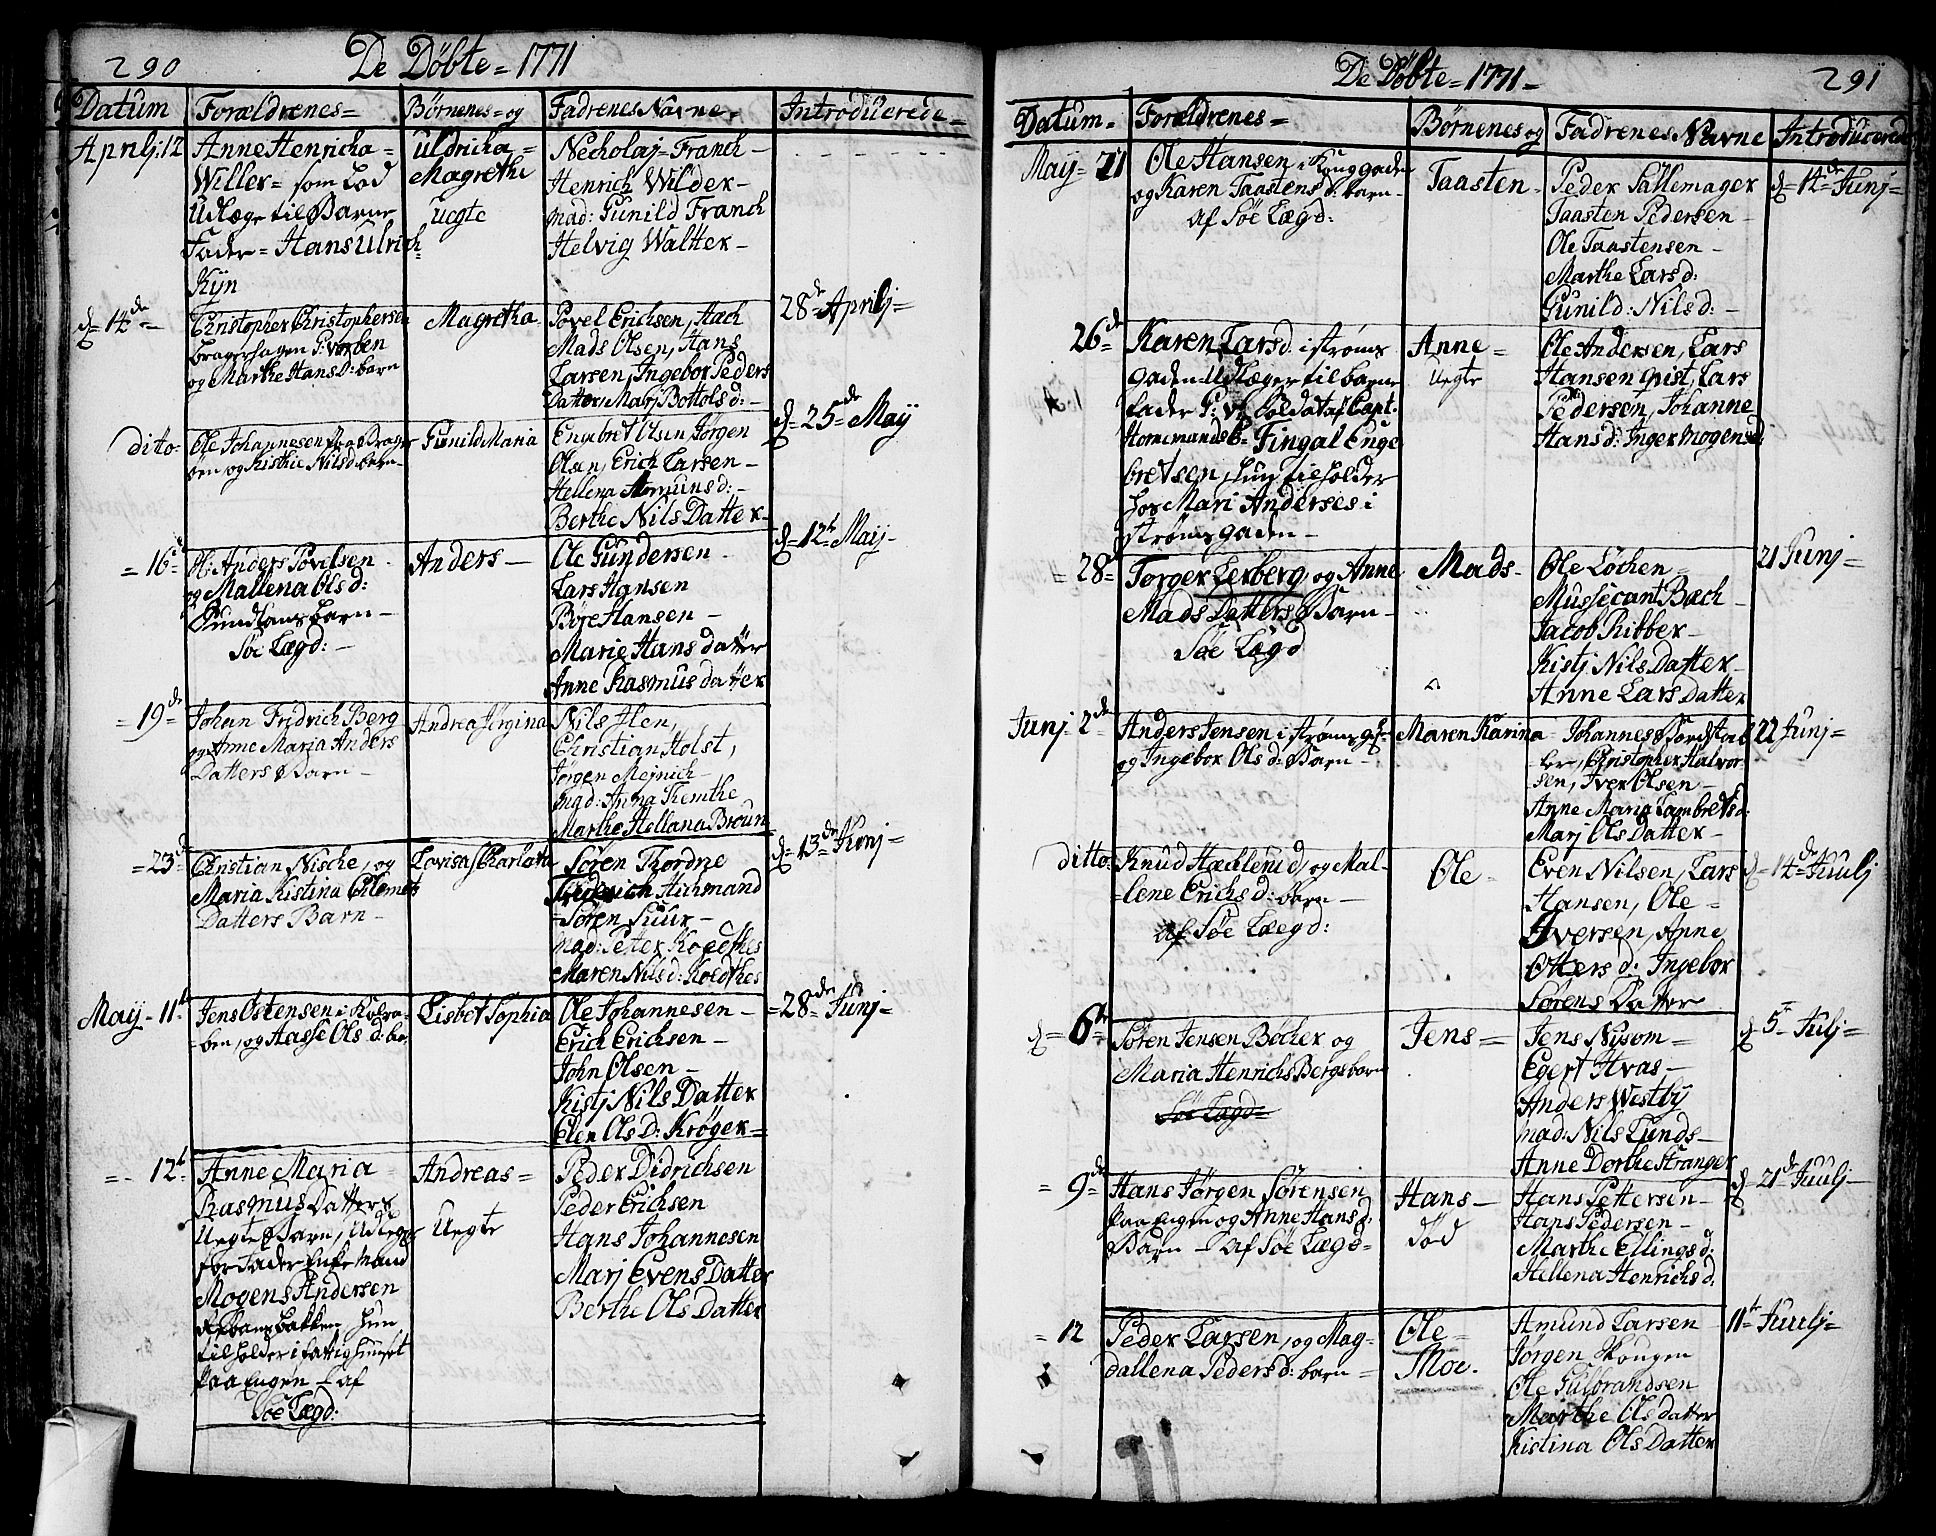 290
De Döbte = 1771
Datum
Forældrenes =
Börnenes = og
Fadrenes Navne.
Introducerede =
Aprilj: 12
Anne Henricha =
Willer = som lod
Udlæge til Barne
Fader = Hans Ulrich
Kijn
Uldricha =
Magrethe
Uegte
Necholaj = Franch –
Henrich Wilder –
Mad: Gunild Franch
Helvig Walter –
d = 14de –
Christopher Christophersen
og Marthe Hans D: barn
Magretha
Povel Erichsen,
Mads Olsen, Hans
Larsen, Ingebor Peders
Datter, Marj Bottols d: –
28de Aprilj =
ditto.
Ole Johannesen paa Brager
öen og Kisthie Nils d: barn –
Gunild Maria
Engebret Olsen Jörgen
Olsen, Erich Larsen –
Hellena Amunds d: –
Berthe Nils Datter –
d = 25de Maij
= 16
Anders Povelsen
og Mallena Ols d:
barn –
Söe Lægd: –
Anders –
Ole Gundersen –
Lars Hansen
Böje Hansen –
Marie Hans datter
Anne Rasmus datter
d = 12t Maij –
= 19de
Johan Fridrich Berg
og Anne Maria Anders
Datters Barn –
Andrea Jörgina
Nils Alen,
Christian Holst,
Jörgen Mejnich –
Mad: Anna Themthe
Marthe Hellana Broun
= 23d
Christian Nische, og
Maria Kistina Clemets
Datters Barn –
Lovisa Charlotta
Sören Thordne
Frederich Hichmand
= Sören Suur –
Mad: Petter
Maren Nils d:
d = 13de Junj =
Maij – 11t
Jens Ostensen i Kobra-
ben, og Aasse Ols d: bar
Lisbet Sophia
Ole Johannesen –
Erich Erichsen –
John Olsen –
Kistj Nils Datter
Elen Ols D: Kröger =
= 28de Junj =
= - 12t
Anne Maria
Rasmus Datters
Uegte Barn, Udlegt
for Fader Enke Mand
Mogens Andersen
bakken hun
tilholder i fattighuuset
paa Engen – af
Söe Lægd:
Andreas =
Uegte
Peder Didrichsen
Peder Erichsen
Hans Johannesen
Marj Evens Datter
Berthe Ols Datter
De Döbte = 1771 –
291
Datum =
Forældrenes =
Börnenes og
Fadrenes Navne
Introducered
Maij = 21
Ole Hansen i Konggaden
og Karen Taastens d: barn –
af Söe Lægd:
Taasten –
Peder Sallemager
Taasten Pedersen –
Ole Taastensen –
Marthe Lars d:
Gunild: Nils d: –
d = 14de Junj =
26de
Karen Lars d. i ströms
gaden Udlæger til barne
fader G: v: Soldat af Capt.
Fingal Enge
bretsen, hun tilholder
hos Mari Anderses i
strömsgaden –
Anne =
Uegte
Ole Andersen, Lars
Hansen Qvist, Lars
Pedersen, Johanne
Hans d: Inger Mogens d
= 28
Torger Lerberg og Anne
Mads Datters Barn –
Söe Lægd
Mads –
Ole Löchen =
Mussecant Bach –
Jacob Ribber –
Kistj Nils Datter –
Anne Lars Datter
21 Junj =
Junj = 2de
Anders Jensen i Strömsg:
og Ingebor Ols d: Barn –
Maren Karina
Johannes
ler, Christopher Halvor-
sen, Iver Olsen –
Anne Maria Lambrets d:
Marj Ols Datter –
22 Junj =
ditto.
Knud Hachlund, og Mal-
= lene Erichs d: barn –
af Söe Lægd:
Ole –
Even Nilsen, Lars
Hansen, Ole =
Iversen, Anne
Otters d: Ingebor
Sörens Datter
d = 14de Juulj
d = 6te
Sören Jensen Böcher og
Maria Henrichs Bergs barn
Söe Lægd =
Jens =
Jens Nysom =
Egert Hvas –
Anders Westby
Mad: Nils Lunds –
Anne Dorthe Stranger
d = 5t Julj =
= 9de
Hans Jörgen Sörensen
paa Engen og Anne Hans d:
Barn – af Söe Lægd =
Hans –
död
Hans Pettersen –
Hans Pedersen –
Marthe Ellings d:
Hellena Henrichs d.
d = 21de Juulj –
= 12
Peder Larsen, og Mag-
dallena Peders d: barn =
Ole –
Moe.
Amund Larsen
Jörgen Skougen
Ole Gulbrandsen
Marthe Ols datter
Kistina Ols Datter
11t Juulj =